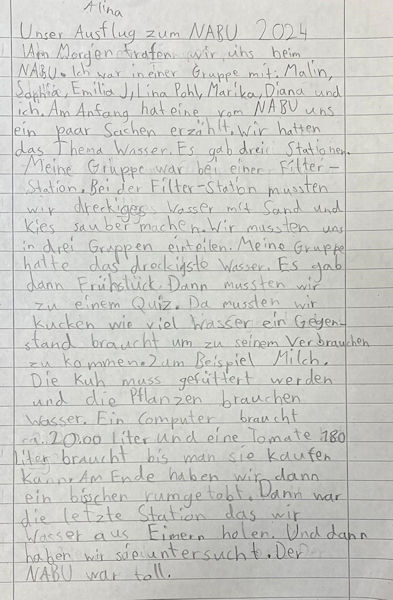 Alina
Unser Ausflug zum NABU 2024
Am Morgen trafen wir uns beim
NABU. Ich war in einer Gruppe mit: Malin,
Sophia, Emilia J, Lina Pohl, Marika, Diana und
ich. Am Anfang hat eine vom NABU uns
ein paar Sachen erzählt. Wir hatten
das Thema Wasser. Es gab drei Stationen.
Meine Gruppe war bei einer Filter-
Station. Bei der Filter-Station mussten
wir dreckiges Wasser mit Sand und
Kies sauber machen. Wir mussten uns
in drei Gruppen einteilen. Meine Gruppe
hatte das dreckigste Wasser. Es gab
dann Frühstück. Dann mussten wir
zu einem Quiz. Da mussten wir
kucken wie viel Wasser ein Gegen-
stand braucht um zu seinem Verbrauchen
zu kommen. Zum Beispiel Milch.
Die Kuh muss gefüttert werden
und die Pflanzen brauchen
Wasser. Ein Computer braucht
ca. 20.00 Liter und eine Tomate 180
Liter braucht bis man sie kaufen
kann. Am Ende haben wir dann
ein bisschen rumgetobt. Dann war
die letzte Station das wir
Wasser aus Eimern holen. Und dann
haben wir sie untersucht. Der
NABU war toll.